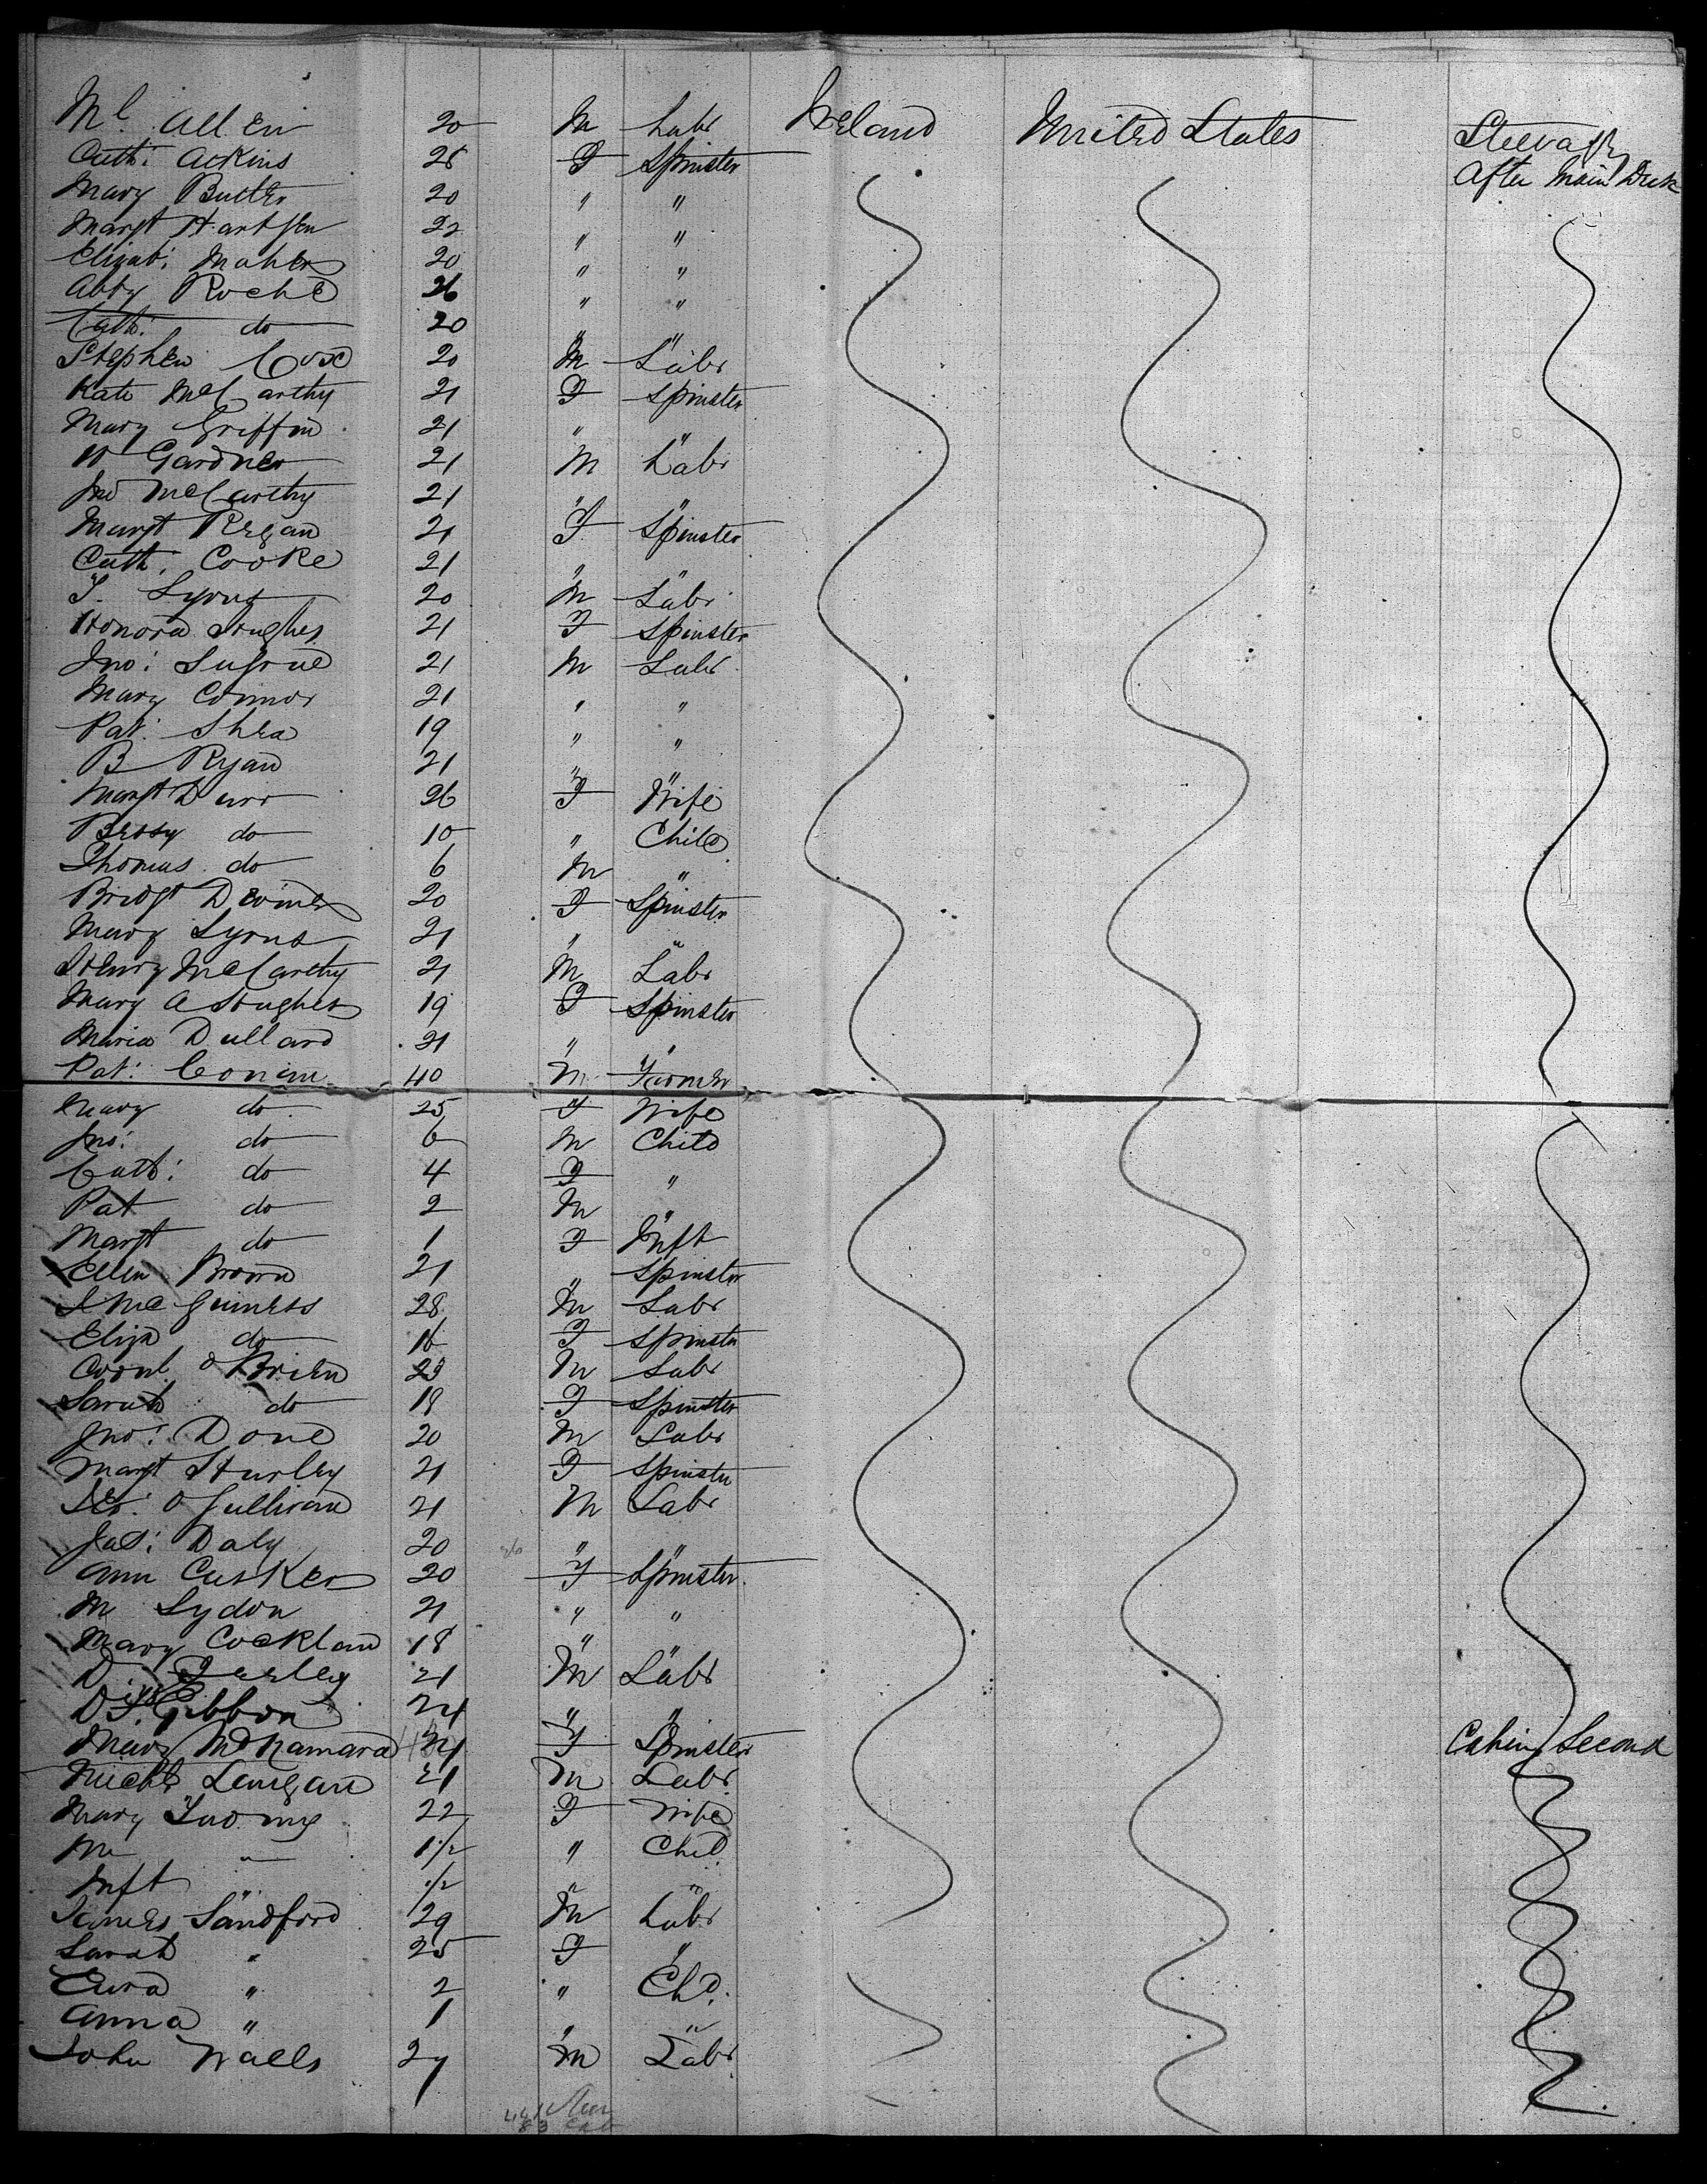 Ml. Allen 20 M Labr Ireland United States Steerage
Cath: Ackins 28 F Spinster After Main Deck
Mary Butler 20 " "
Margt Hartsen 22 " "
Elizab: Maher 20 " "
Abby Roche 26 " "
Cath: do 20 " "
Stephen Cox 20 M Labr
Kate McCarthy 21 F Spinster
Mary Griffin 21 " "
W Gardner 21 M Labr
Jno McCarthy 21 " "
Margt Regan 21 F Spinster
Cath: Cooke 21 " "
T. Lyons 20 M Labr
Honora Hughes 21 F Spinster
Jno: Sugrue 21 M Labr
Mary Connor 21 " "
Pat: Shea 19 " "
B Ryan 21 " "
Margt Durr 26 F Wife
Bessy do 10 " Child
Thomas do 6 M "
Bridgt Deviner 20 F Spinster
Mary Lyons 21 " "
Henry McCarthy 21 M Labr
Mary A Hughes 19 F Spinster
Maria Dullard 21 " "
Pat: 40 M Farmer
Mary do 25 F Wife
Jno: do 6 M Child
Cath: do 4 F "
Pat do 2 M "
Margt do 1 F Inft
Ellen Brown 21 " Spinster
J McGuiness 28 M Labr
Eliza do 16 F Spinster
Cornl. O'Brien 23 M Labr
Sarah do 18 F Spinster
Jno: Done 20 M Labr
Margt Hurley 21 F Spinster
O Sullivan 21 M Labr
Jas: Daly 20 " "
Ann Cusker 20 F Spinster
M Lydon 21 " "
Mary Cocklan 18 " "
D 21 M Labr
Gibbon 24 " "
Mary McNamara 21 F Spinster Cabin Second
Michl Lanigan 21 M Labr
Mary Twomy 22 F Wife
M " 1 1/2 " Child
Inft " 1/2 " "
James Sandford 29 M Labr
Sarah " 25 F "
" 2 " Chd.
Anna " 1 " "
John Walls 27 M Labr